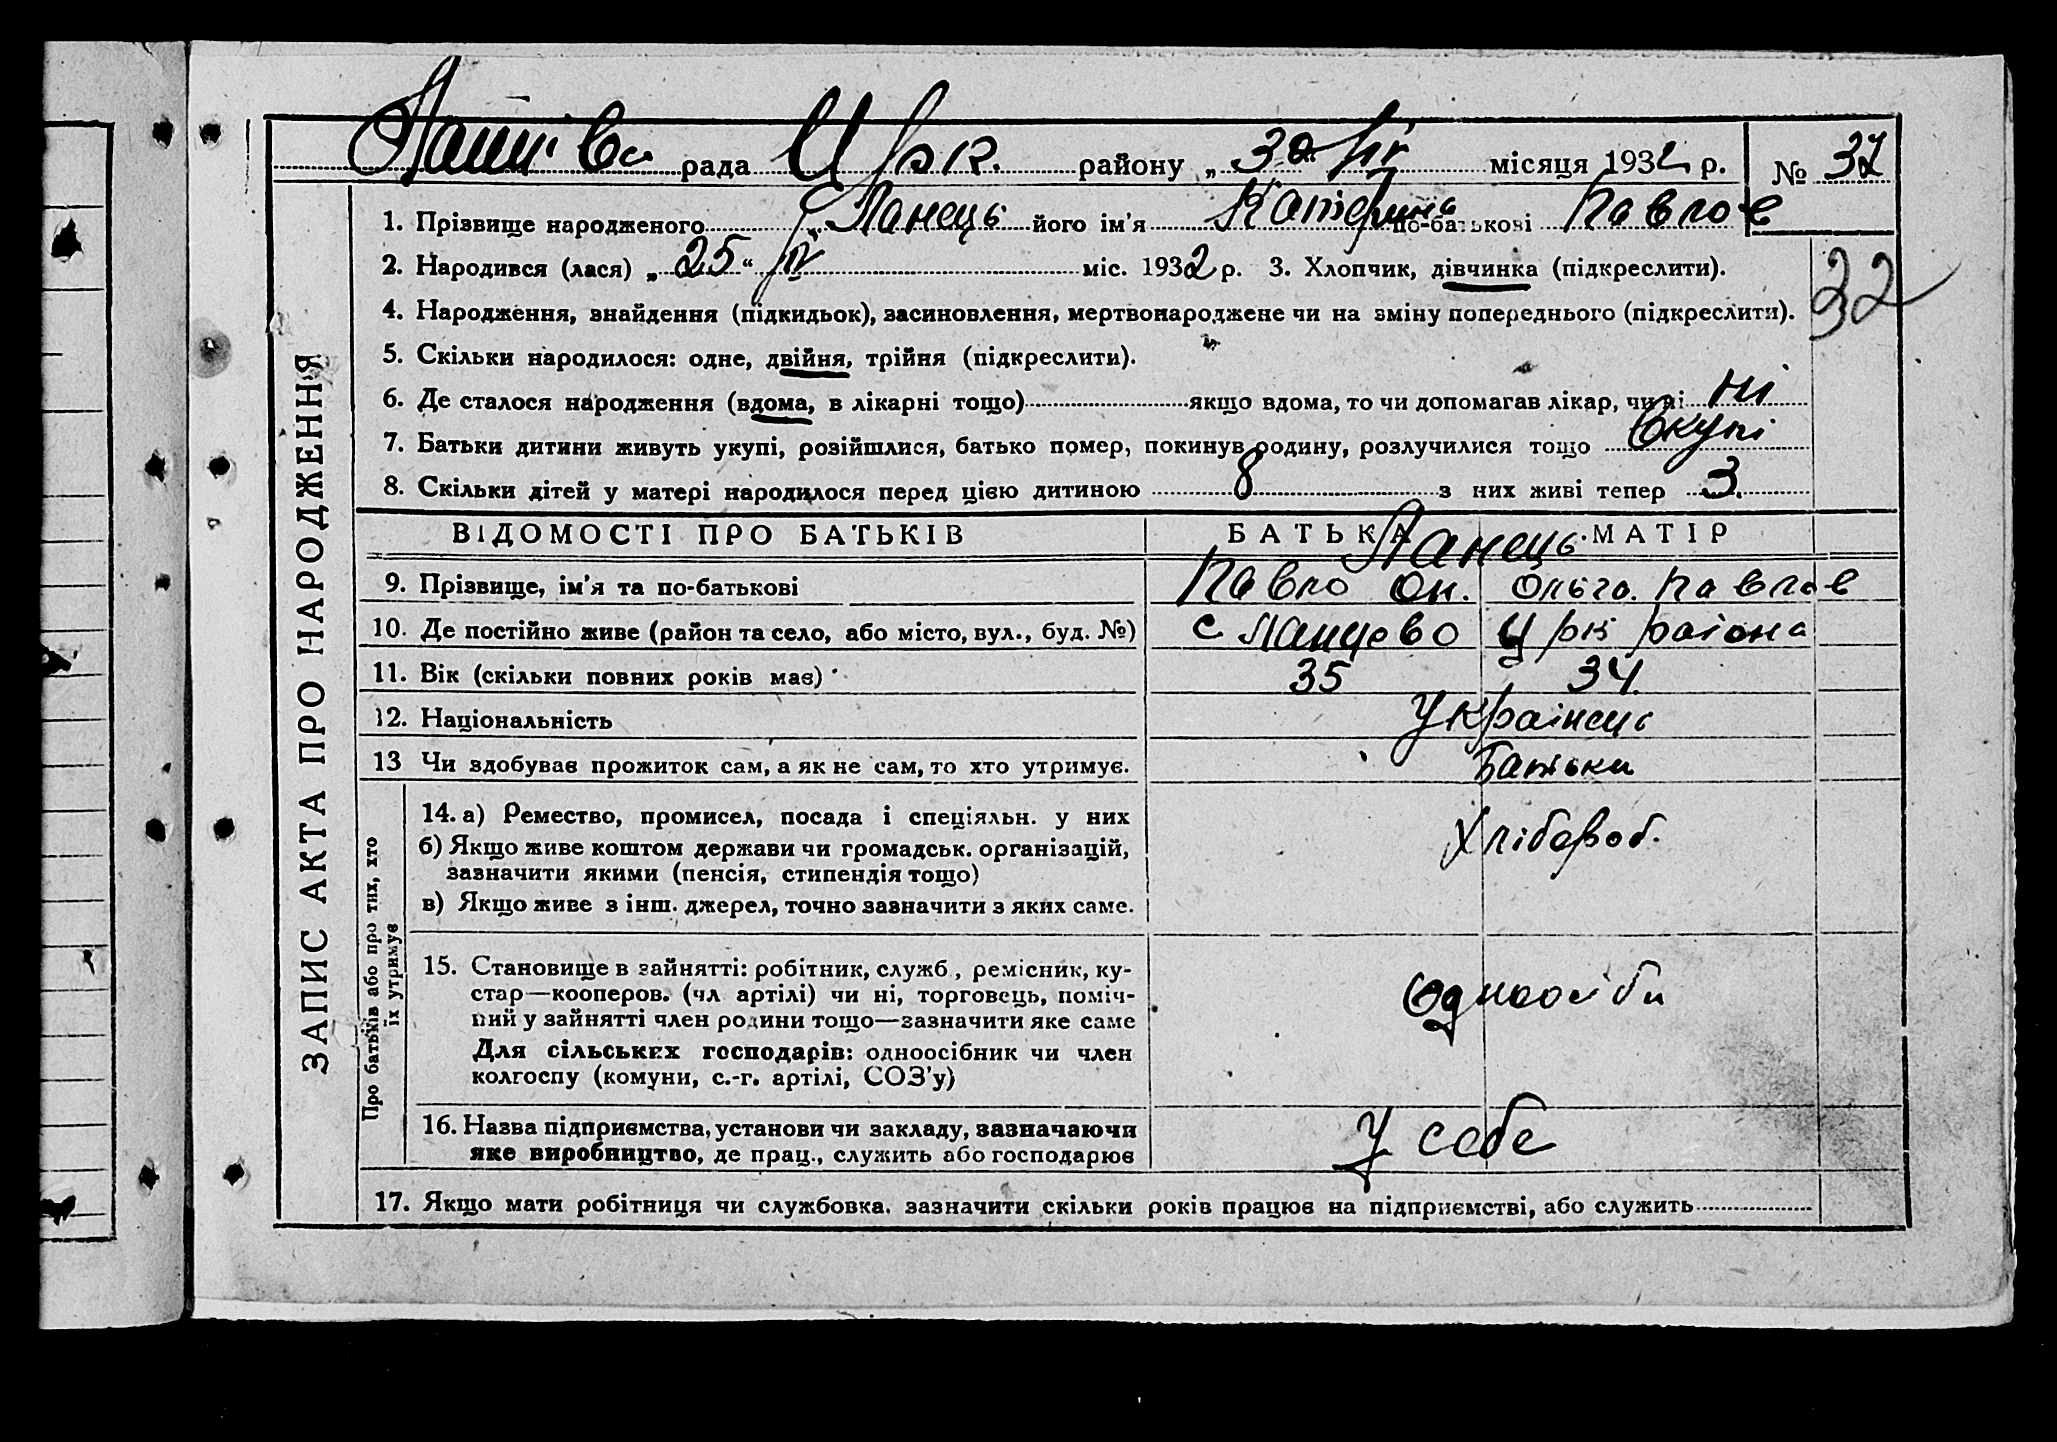 рада району „ 30 місяця 1932 р. № 32
1. Прізвище народженого Ланець його ім'я Катерина по-батькові Павлов
2. Народився (лася) „ 25 “ IV міс. 1932 р. 3. Хлопчик, дівчинка (підкреслити).
32
4. Народження, знайдення (підкидьок), засиновлення, мертвонароджене чи на зміну попереднього (підкреслити).
5. Скільки народилося: одне, двійня, трійня (підкреслити).
6. Де сталося народження (вдома, в лікарні тощо) якщо вдома, то чи допомагав лікар, чи ні ні
7. Батьки дитини живуть укупі, розійшлися, батько помер, покинув родину, розлучилися тощо вкупі
8. Скільки дітей у матері народилося перед цією дитиною 8 з них живі тепер 3.
ЗАПИС АКТА ПРО НАРОДЖЕННЯ
ВІДОМОСТІ ПРО БАТЬКІВ БАТЬКА МАТІР
Ланець
9. Прізвище, ім'я та по-батькові Павло Он. Ольга Павлов
10. Де постійно живе (район та село, або місто, вул., буд. №) с Ланцево района
11. Вік (скільки повних років має) 35 34.
12. Національність Українець
13 Чи здобував прожиток сам, а як не сам, то хто утримує. Батьки
Про батьків або про тих, хто
їх утримує
14. а) Ремество, промисел, посада і спеціяльн. у них Хлібороб.
б) Якщо живе коштом держави чи громадськ. організацій,
зазначити якими (пенсія, стипендія тощо)
в) Якщо живе з інш. джерел, точно зазначити з яких саме.
15. Становище в зайнятті: робітник, служб., ремісник, ку-
стар—кооперов. (чл артілі) чи ні, торговець, поміч- одноосіби
ний у зайнятті член родини тощо—зазначити яке саме
Для сільських господарів: одноосібник чи член
колгоспу (комуни, с.-г. артілі, СОЗ'у)
16. Назва підприємства, установи чи закладу, зазначаючи у себе
яке виробництво, де прац., служить або господарює
17. Якщо мати робітниця чи службовка, зазначити скільки років працює на підприємстві, або служить